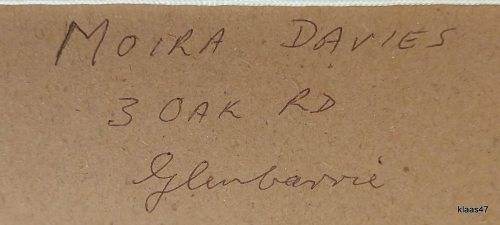 MOIRA DAVIES
3 OAK RD
Glenbarrie
klaas47